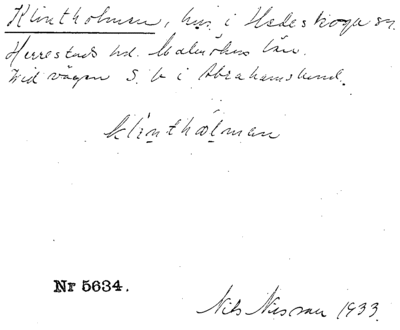 Klintholmen, hus i Hedeskoga sn.
Herrestads hd. Malmöhus län.
Vid vägen S. V i Abrahamslund.
klintholman
Nr 5634.
Nils Nilsson 1933.